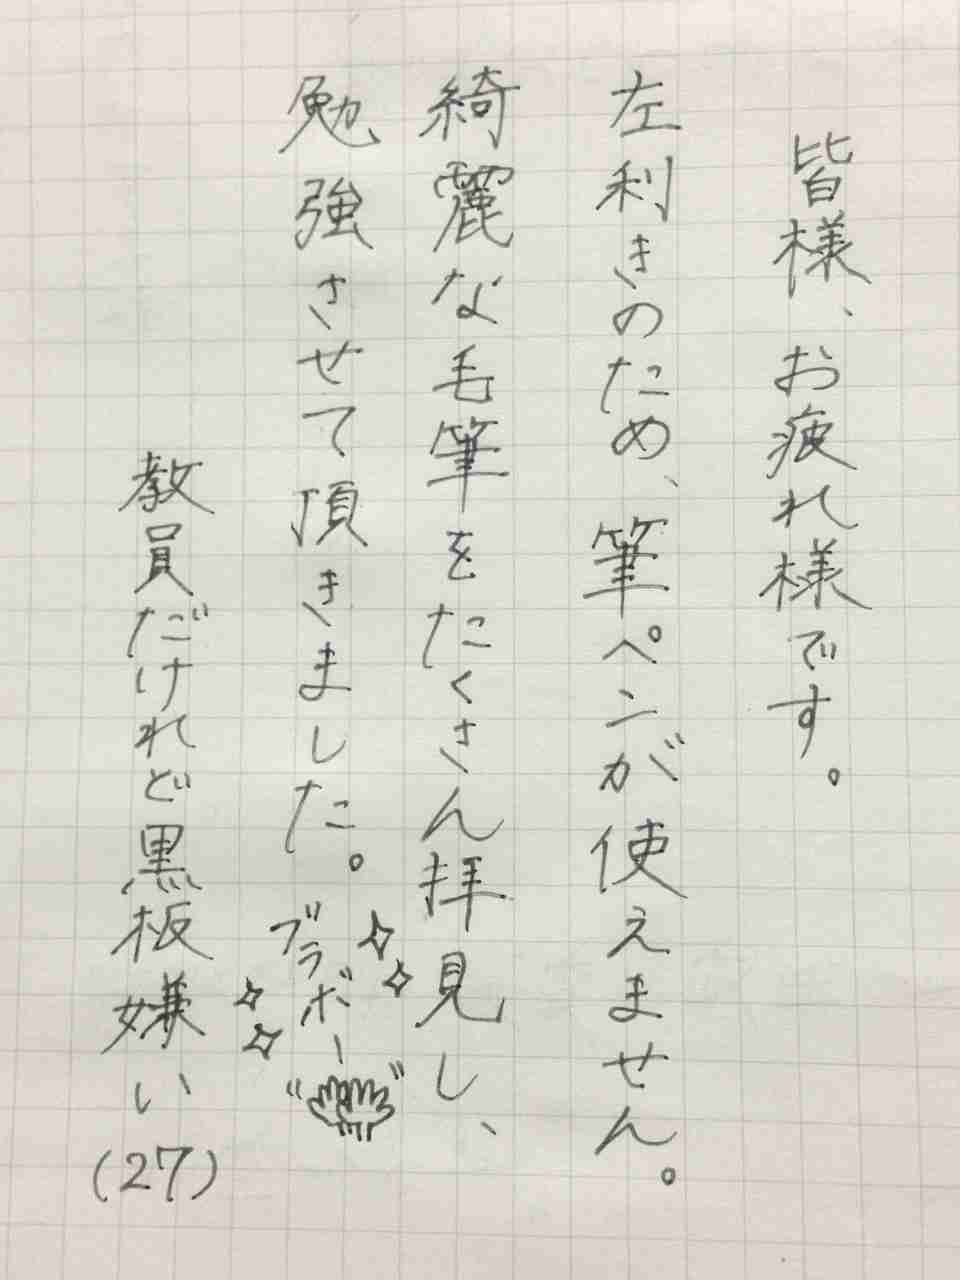 皆様、お疲れ様です。
左利きのため、筆ペンが使えません。
綺麗な毛筆をたくさん拝見し、
勉強させて頂きました。
ブラボー
教員だけれど黒板嫌い(27)